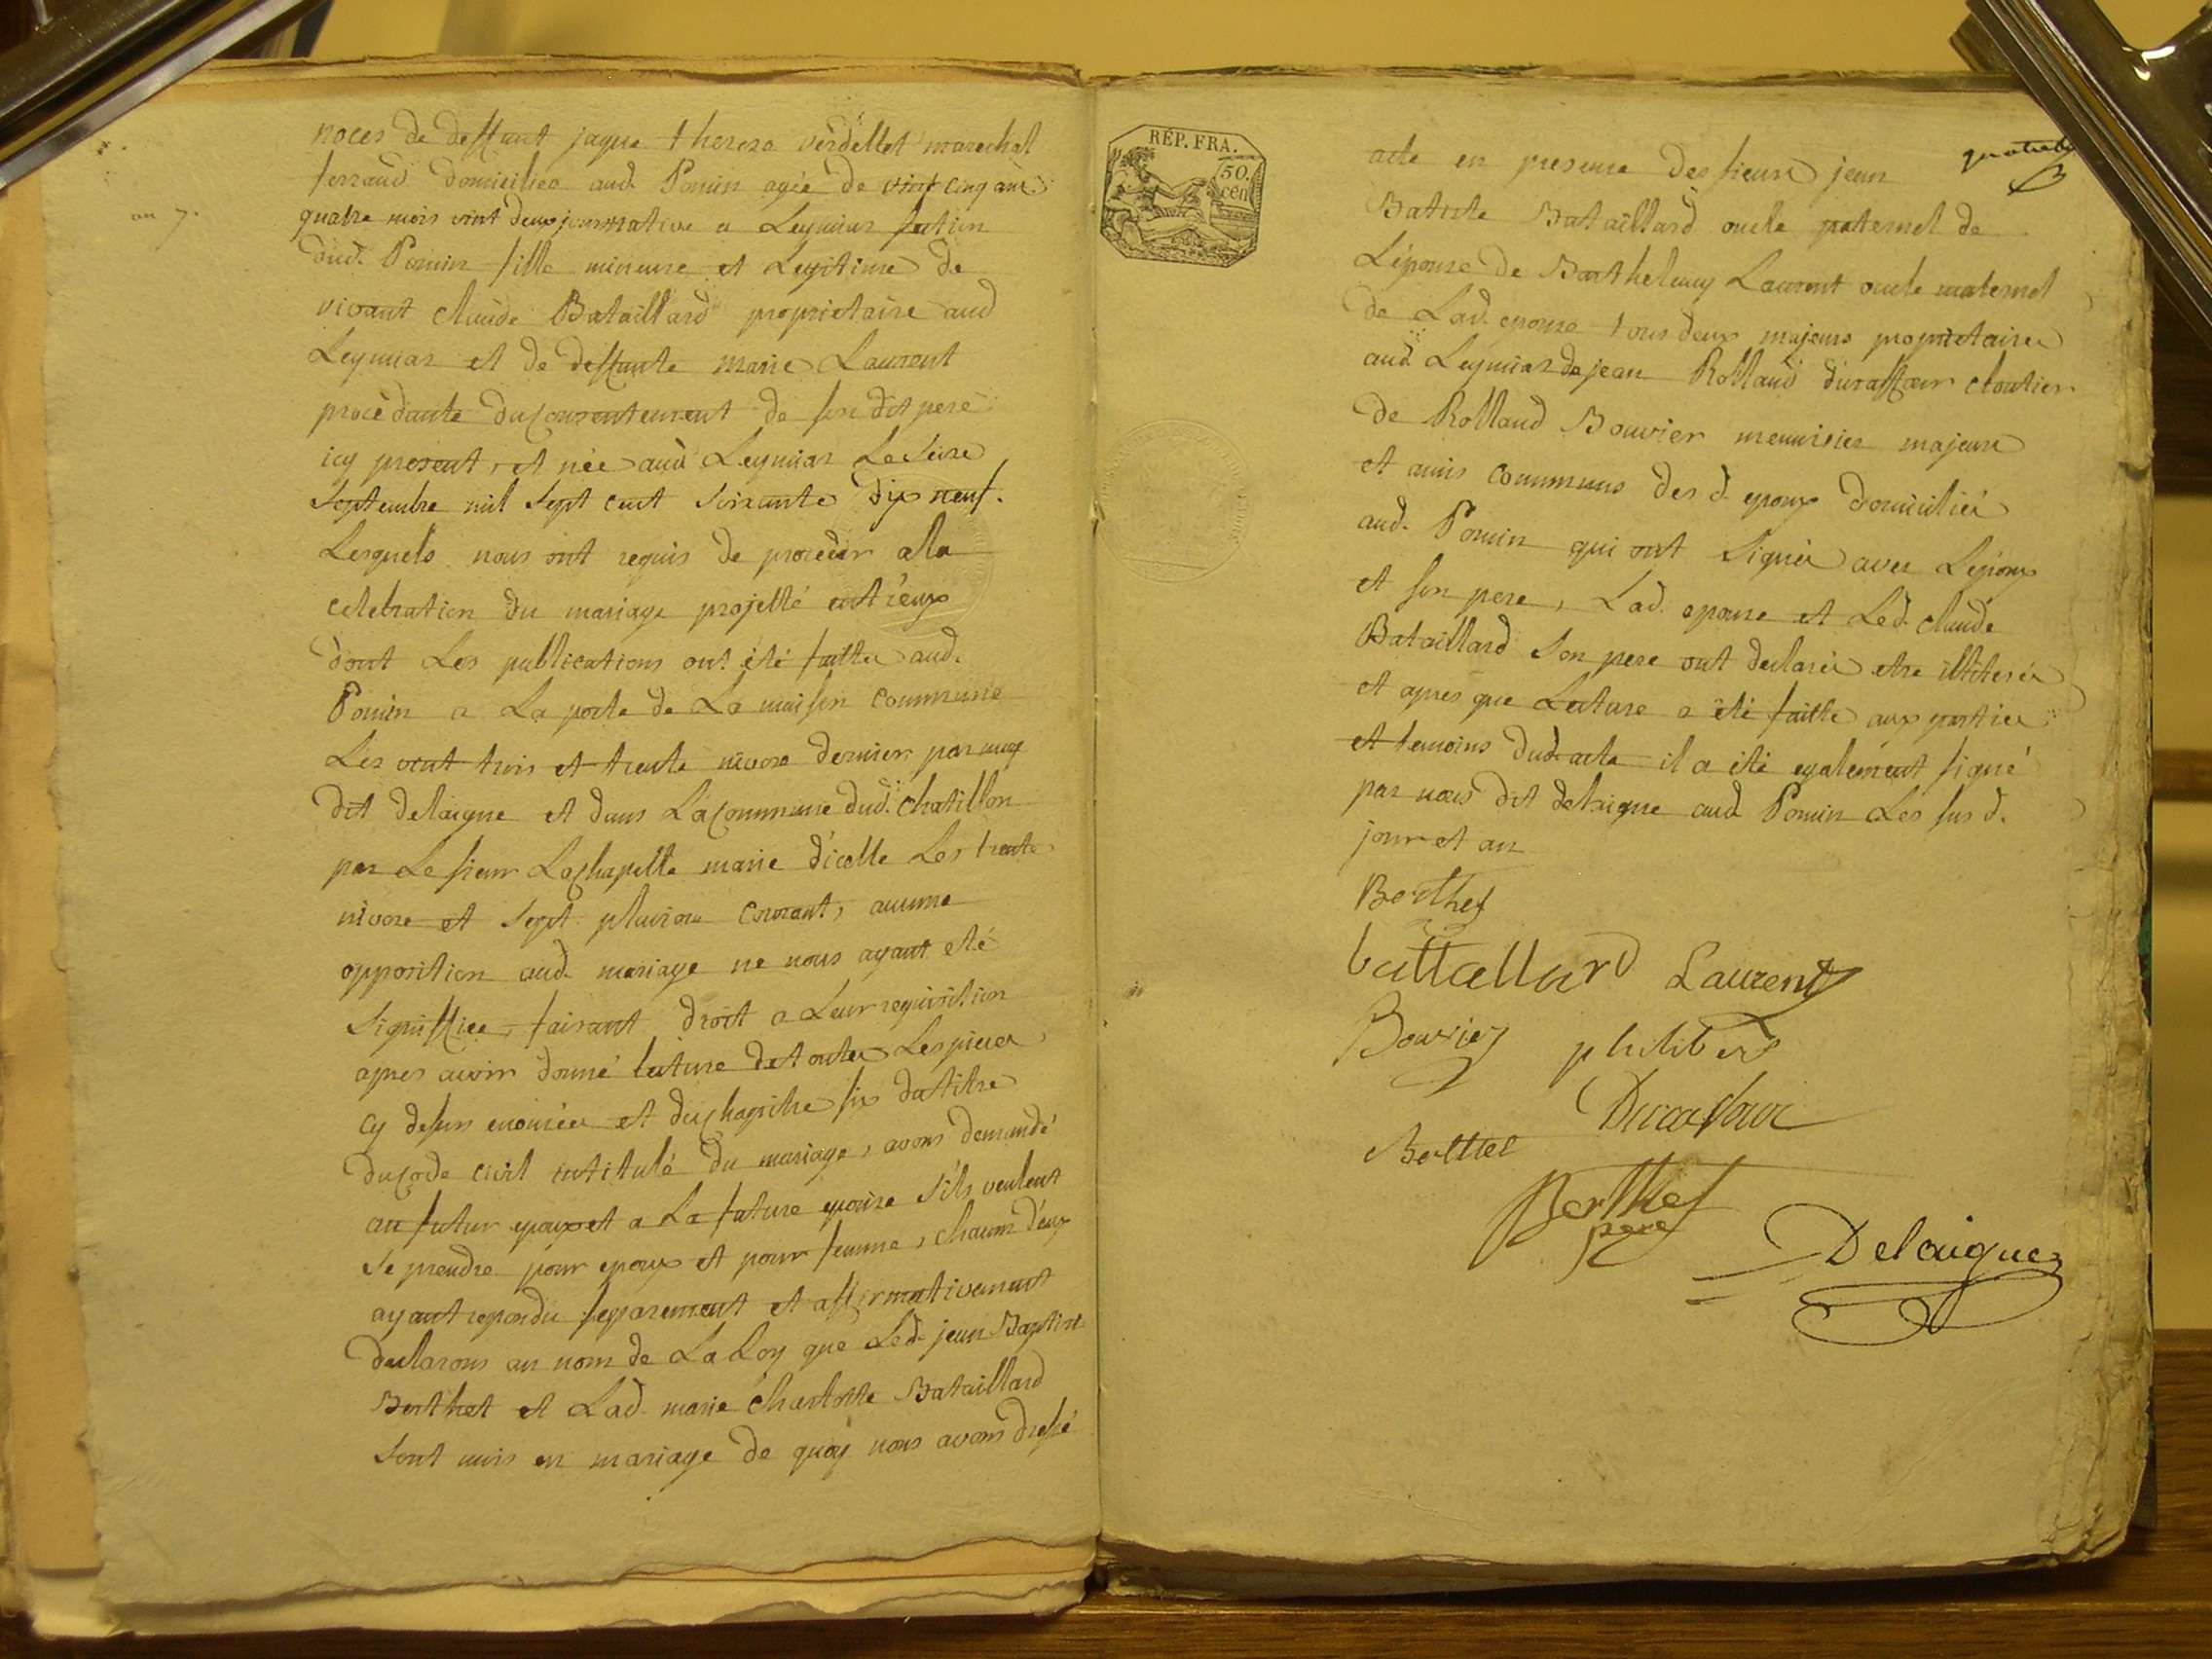 noces de deffunt jaque therese verdellet marechal
ferrand domiciliee aud. Poncin agée de vint cinq ans
an 7.
quatre mois vint deux jours native a Leymiat section
dud. Poncin fille mineure et Legitime de
vivant claude Bataillard proprietaire aud
Leymiat et de deffunte marie Laurent
procedante du consentement de son dit pere
icy present, et née aud Leymiat Le seize
Septembre mil sept cent soixante dix neuf.
Lesquels nous ont requis de proceder a la
celebration du mariage projetté entr'eux
dont Les publications ont été faittes aud.
Poncin a La porte de La maison Commune
Les vint trois et trente nivose dernier par moy
dit delaigue et dans La Commune dud. chatillon
par Le sieur Lachapelle maire d'icelle Les trente
nivose et sept pluviose courant, aucune
opposition aud. mariage ne nous ayant eté
signiffiee, faisant droit a Leur requisition
apres avoir donné lecture de toutes Les pieces
cy dessus enoncées et du chapitre six du titre
du Code civil intitulé du mariage, avons demandé
au futur epoux et a La future epouse s'ils veulent
se prendre pour epoux et pour femme, chacun d'eux
ayant repondu separement et affirmativement
declarons au nom de La Loy que Led. jean Baptiste
Berthet et Lad. marie Charlotte Bataillard
sont unis en mariage de quoy nous avons dressé
RÉP. FRA.
50.
cen
acte en presence des sieurs jean
Batiste Bataillard oncle paternel de
L'épouse de Barthelemy Laurent oncle maternel
de Lad. epouse tous deux majeurs proprietaires
aud. Leymiat de jean Rolland durassour cloutier
de Rolland Bouvier menuisier majeurs
et amis communs des d. epoux domiciliés
aud. Poncin qui ont signés avec L'epoux
et son pere, Lad. epouse et Led. claude
Bataillard son pere ont declarés etre illiterés
et apres que Lecture a été faitte aux parties
et temoins dud. acte il a été egalement signé
par nous dit delaigue aud Poncin Les sus d.
jour et an
Berthet
battallard Laurent
Bouvier philibert
Berthet
Berthet
pere
Delaigue